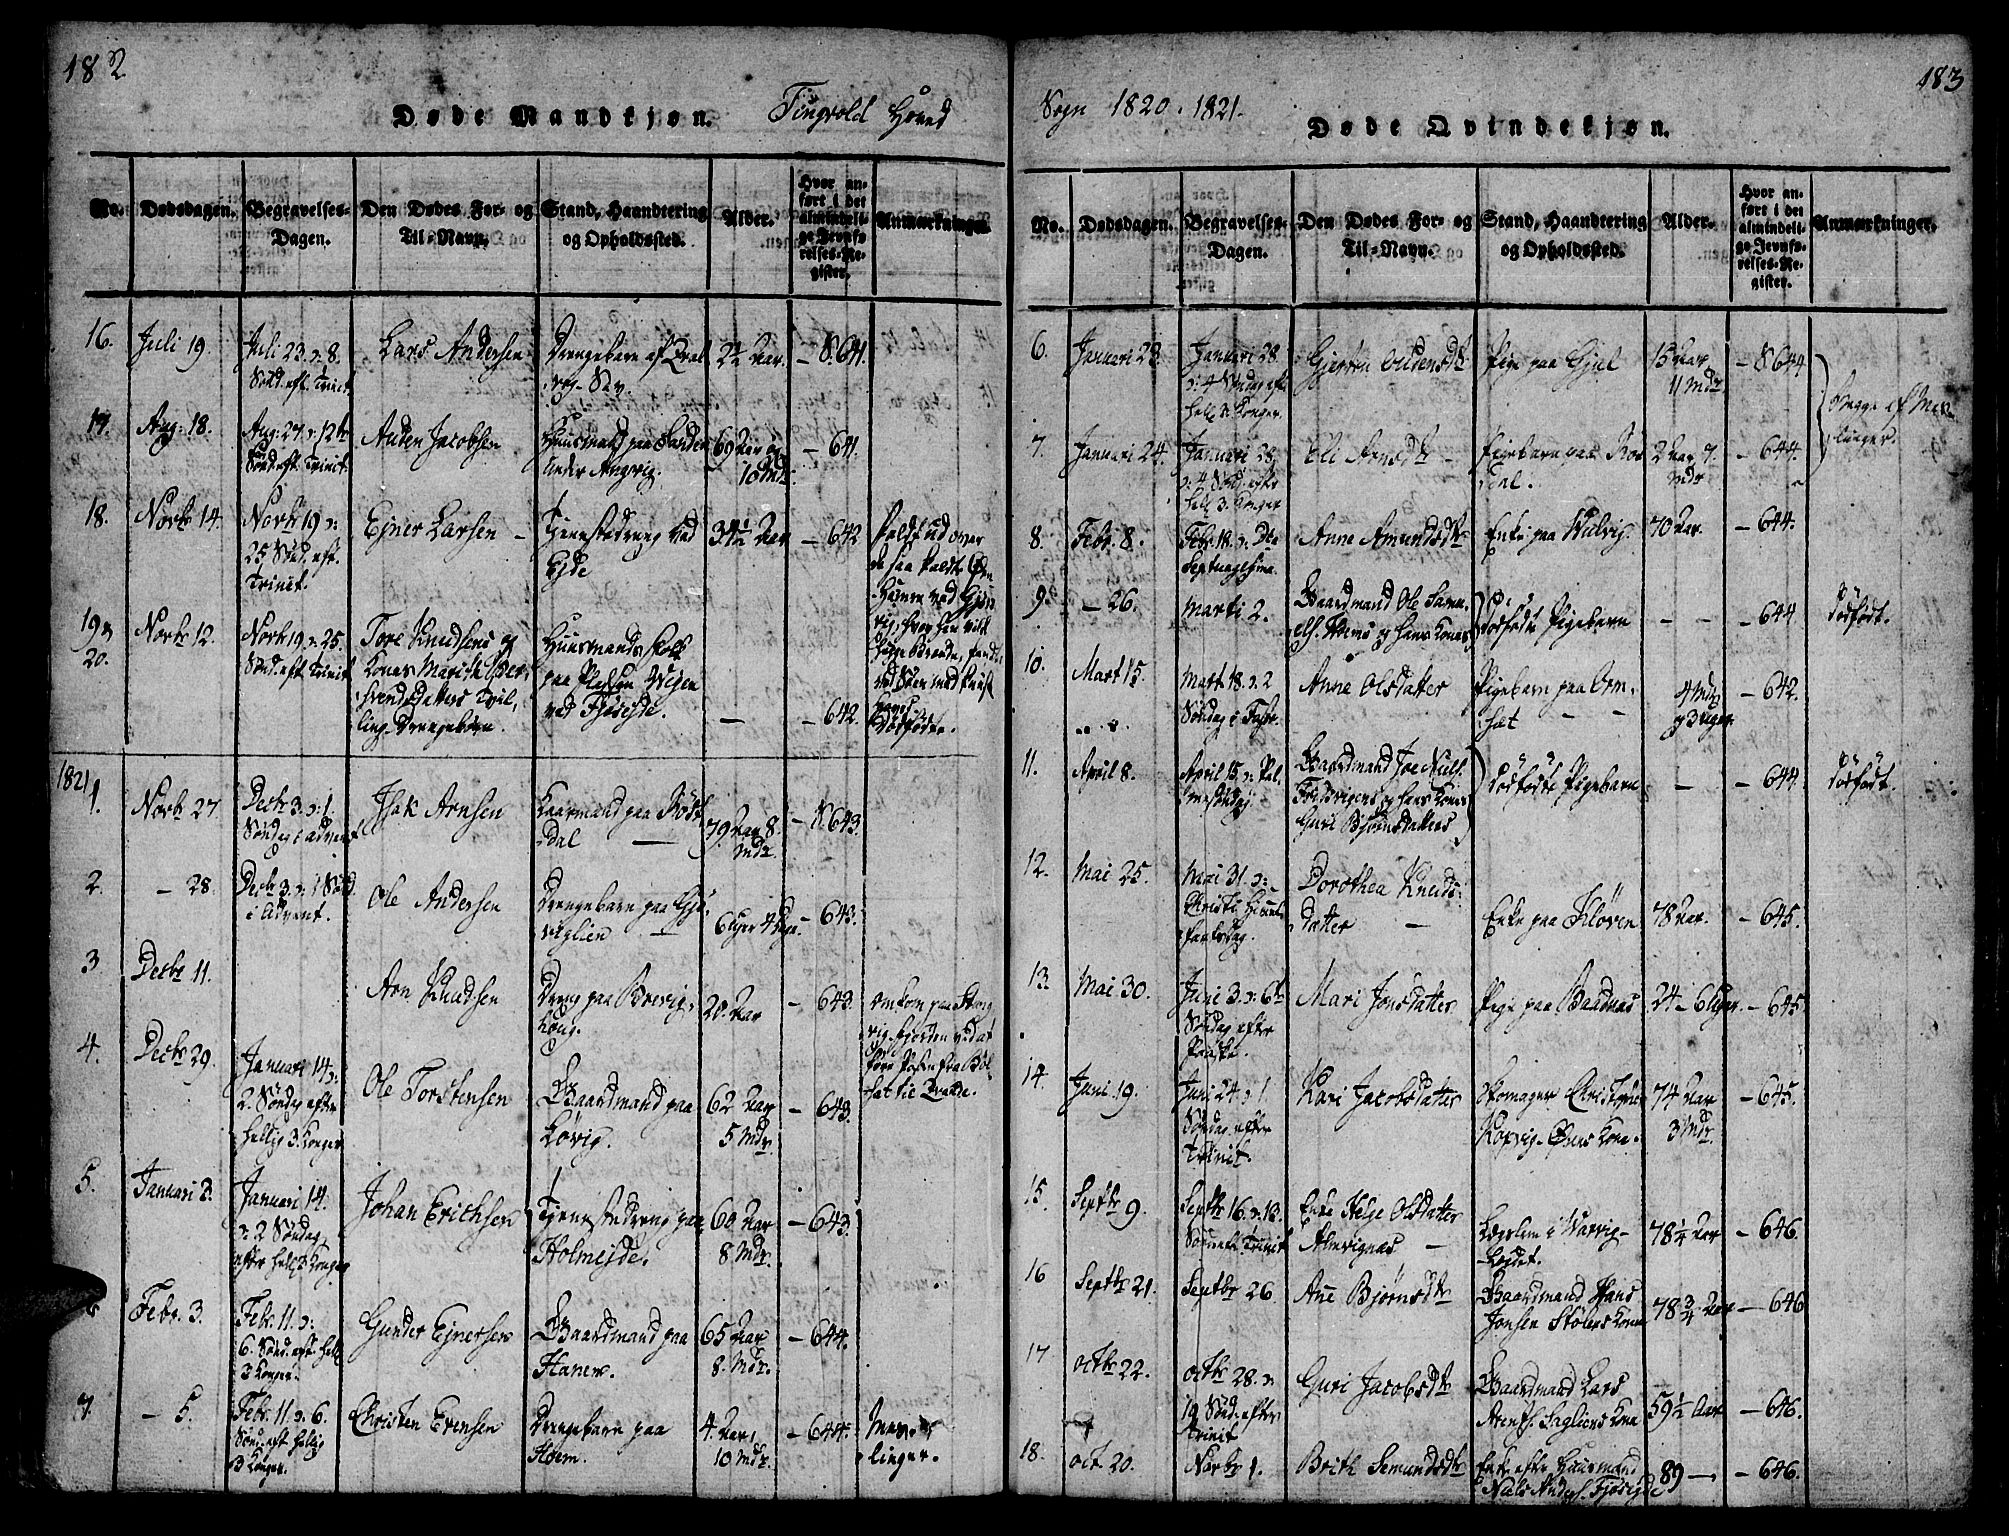 182
Døde Mandkjøn.
Tingvold Hoved
No.
Dødsdagen.
Begravelses-
Dagen.
Den Dødes For- og
Til-Navn.
Stand, Haandtering
og Opholdssted.
Alder.
Hvor an-
ført i det
almindeli-
ge Jevnfø-
relses-Re-
gister.
Anmærkninger.
16.
Juli 19.
Juli 23. ɔ: 8.
Sönd. eft. Trinit.
Lars Andersen
Drengebarn af
2½ Aar.
- 8.641.
17.
Aug: 18.
Aug: 27 ɔ: 12te
Sönd. eft. Trinit.
Auden Jacobsen
Huusmand paa Sanden
under Angvig.
69 Aar og
10 Mdr.
- 641.
18.
Novbr 14.
Novbr 19 ɔ:
25 Sönd. eft.
Trinit.
Ejner Larsen -
Tjenestedreng ved
Ejde
34½ Aar
- 642
19 og
20.
Novbr 12.
Novbr 19 ɔ: 25.
Sönd. eft. Trinit
Tore Knudsens og
Kones Marith
Svendsdatters Tvil,
ling Drengebørn.
Huusmands Folk
paa Pladsen Vejen
ved Fjøsejde.
-
- 642.
Dødfødte.
1821
1.
Novbr 27
Decbr 3. ɔ: 1.
Søndag i Advent
Isak Arnsen
Kaarmand paa
dal -
79 Aar 8.
Mdr.
- 8.643.
2.
- 28.
Decbr 3. ɔ: 1 Sönd.
i Advent.
Ole Andersen
Drengebarn paa
viglien -
6 Uger 4 Dage.
- 643.
3
Decbr 11.
Arn Knudsen
Dreng paa
20. Aar
- 643.
omkom paa
4.
Decbr 29.
Januari 14 ɔ:
2. Søndag efter
hellig 3 Konger
Ole Torstensen
Gaardmand paa
Løvig.
62 Aar
5 Mdr.
- 643.
5.
Januari 2.
Januari 14.
ɔ: 2 Søndag
efter hell. 3 Konger
Johan Erichsen
Tjenestedreng paa
Holmejde.
60 Aar
8 Mdr.
- 643.
Febr. 3.
Febr. 11. ɔ:
6. Sönd. eft. hell.
3 Konger.
Gunder Ejnersen
Gaardmand paa
Hanem.
65 Aar
8. Mdr.
- 644.
7.
- 5.
Febr. 11. ɔ: 6.
Sönd. eft. hellig
3 Konger.
Christen Evensen
Drengebarn paa
Hoem.
4. Aar,
10 Mdr.
- 644.
Mes-
linger.
183
Sogn 1820. 1821.
Døde Qvindekjøn.
No.
Dødsdagen.
Begravelses-
Dagen.
Den Dødes For- og
Til-Navn.
Stand, Haandtering
og Opholdssted.
Alder.
Hvor an-
ført i det
almindeli-
ge Jevnfø-
relses-Re-
gister.
Anmærkninger.
6.
Januari 23.
Januari 28
ɔ: 4 Søndag eft.
hell. 3 Konger.
Gjertru Audensdtr
Pige paa Gjul
15 Aar
11 Mdr.
- 8644
Begge af Mes-
linger.
7.
Januari 24.
Januari 28.
ɔ: 4 Sönd. efter
hell. 3. Konger
Eli Arnsdtr -
Pigebarn paa Ros
dal.
2 Aar 7.
Mdr
- 644.
8.
Febr. 8.
Febr. 18. ɔ: Dca
Septuagesima.
Anne Amundsdtr
Enke paa Hulvig.
70 Aar.
- 644.
9.
- 26.
Marti 2.
Gaardmand Ole
og hans Kones
dødfødte Pigebarn
- -
- 644
dødfødt.
10.
Mart 15.
Mart 18. ɔ: 2
Søndag i Faste.
Anne Olsdatter
Pigebarn paa Orm-
sæt - -
4 Mdr
og 3 Uger.
- 642.
11.
April 8.
April 15. ɔ: Pal-
mesøndag.
Gaardmand Joe Niels.
og hans Kones
Guri Bjørnsdatters
dødfødte Pigebarn
-
- 644.
dødfødt.
12.
Mai 25.
Mai 31. ɔ:
Christi Himmel-
fartsdag.
Dorothea Knuds-
datter -
Enke paa Kløven
78 Aar.
- 645.
13.
Mai 30.
Juni 3. ɔ: 6te
Søndag efter
Paaske.
Mari Jonsdatter
Pige paa Baadnæs
24 - 6 Uger.
- 645.
14.
Juni 19.
Juni 24. ɔ: 1.
Søndag efter
Trinit.
Kari Jacobsdatter
Skomager
Kone.
74 Aar
3 Mdr.
- 645.
15.
Septbr 9.
Septbr 16. ɔ: 13.
Søn. eft. Trinit
Enke Helge Olsdatter
Almvignæs -
Lægslem i Warvig-
Lægdet.
78¼ Aar
- 646.
16
Septbr 21.
Septbr 26.
Ane Bjørnsdtr
Gaardmand Hans
Jonsen Stølens Kone
78¾ Aar
- 646
17
Octbr 22.
Octbr 28. ɔ:
19 Sönd. efter
Trinit
Guri Jacobsdtr
Gaardmand Lars
Arents. Sagliens Kone
59½ Aar
- 646.
18.
Oct. 20.
Novbr 1.
Brith Semundsdtr
Enke efter Huusmand
Niels Anders. Fjøsejde
89 -
- 646.